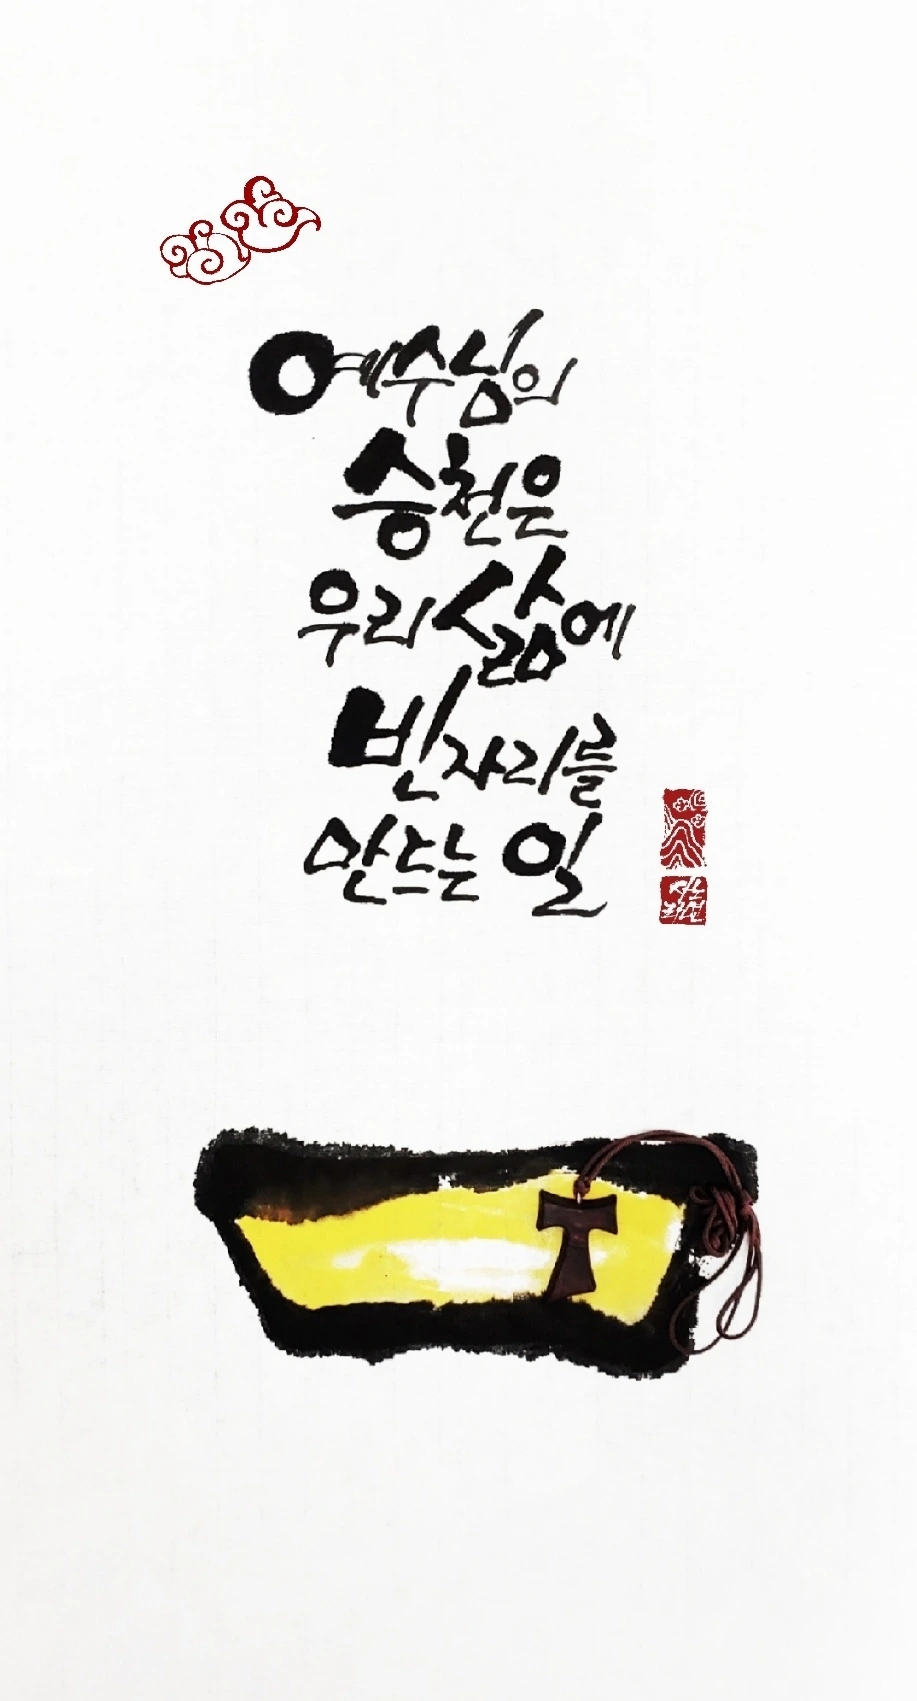 예수님의
승천은
우리 삶에
빈자리를
만드는 일